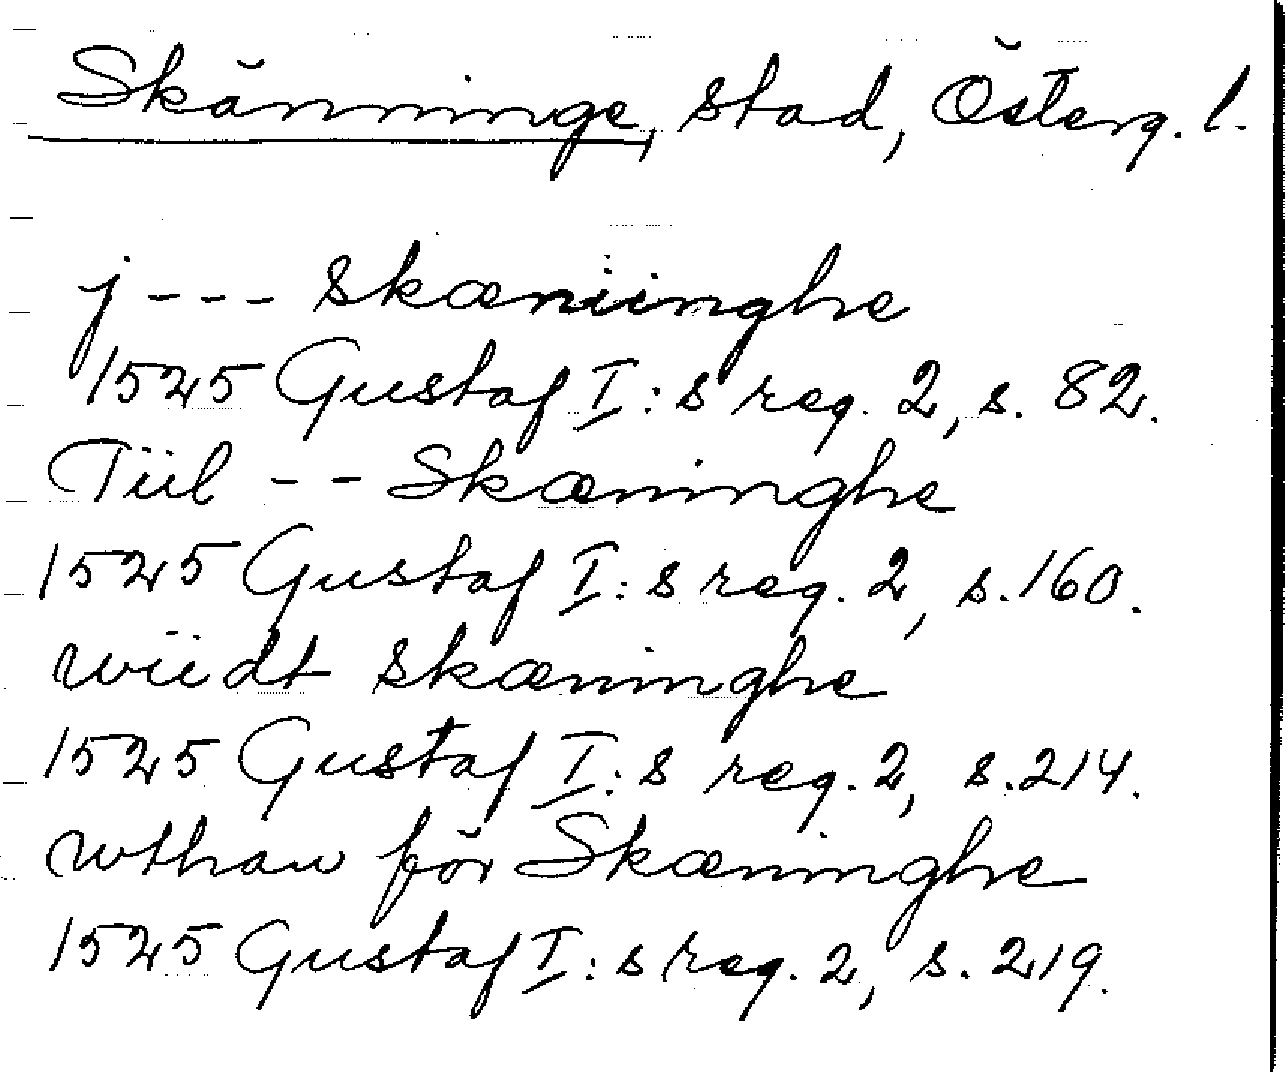 Skänninge, stad, Österg. l.
j --- skæniinghe
1525 Gustaf I:s reg. 2, s. 82.
Tiil -- Skæninghe
1525 Gustaf I:s reg. 2, s. 160.
wiidt skæninghe
1525 Gustaf I:s reg. 2, s. 214.
wthan för Skæninghe
1525 Gustaf I:s reg. 2, s. 219.